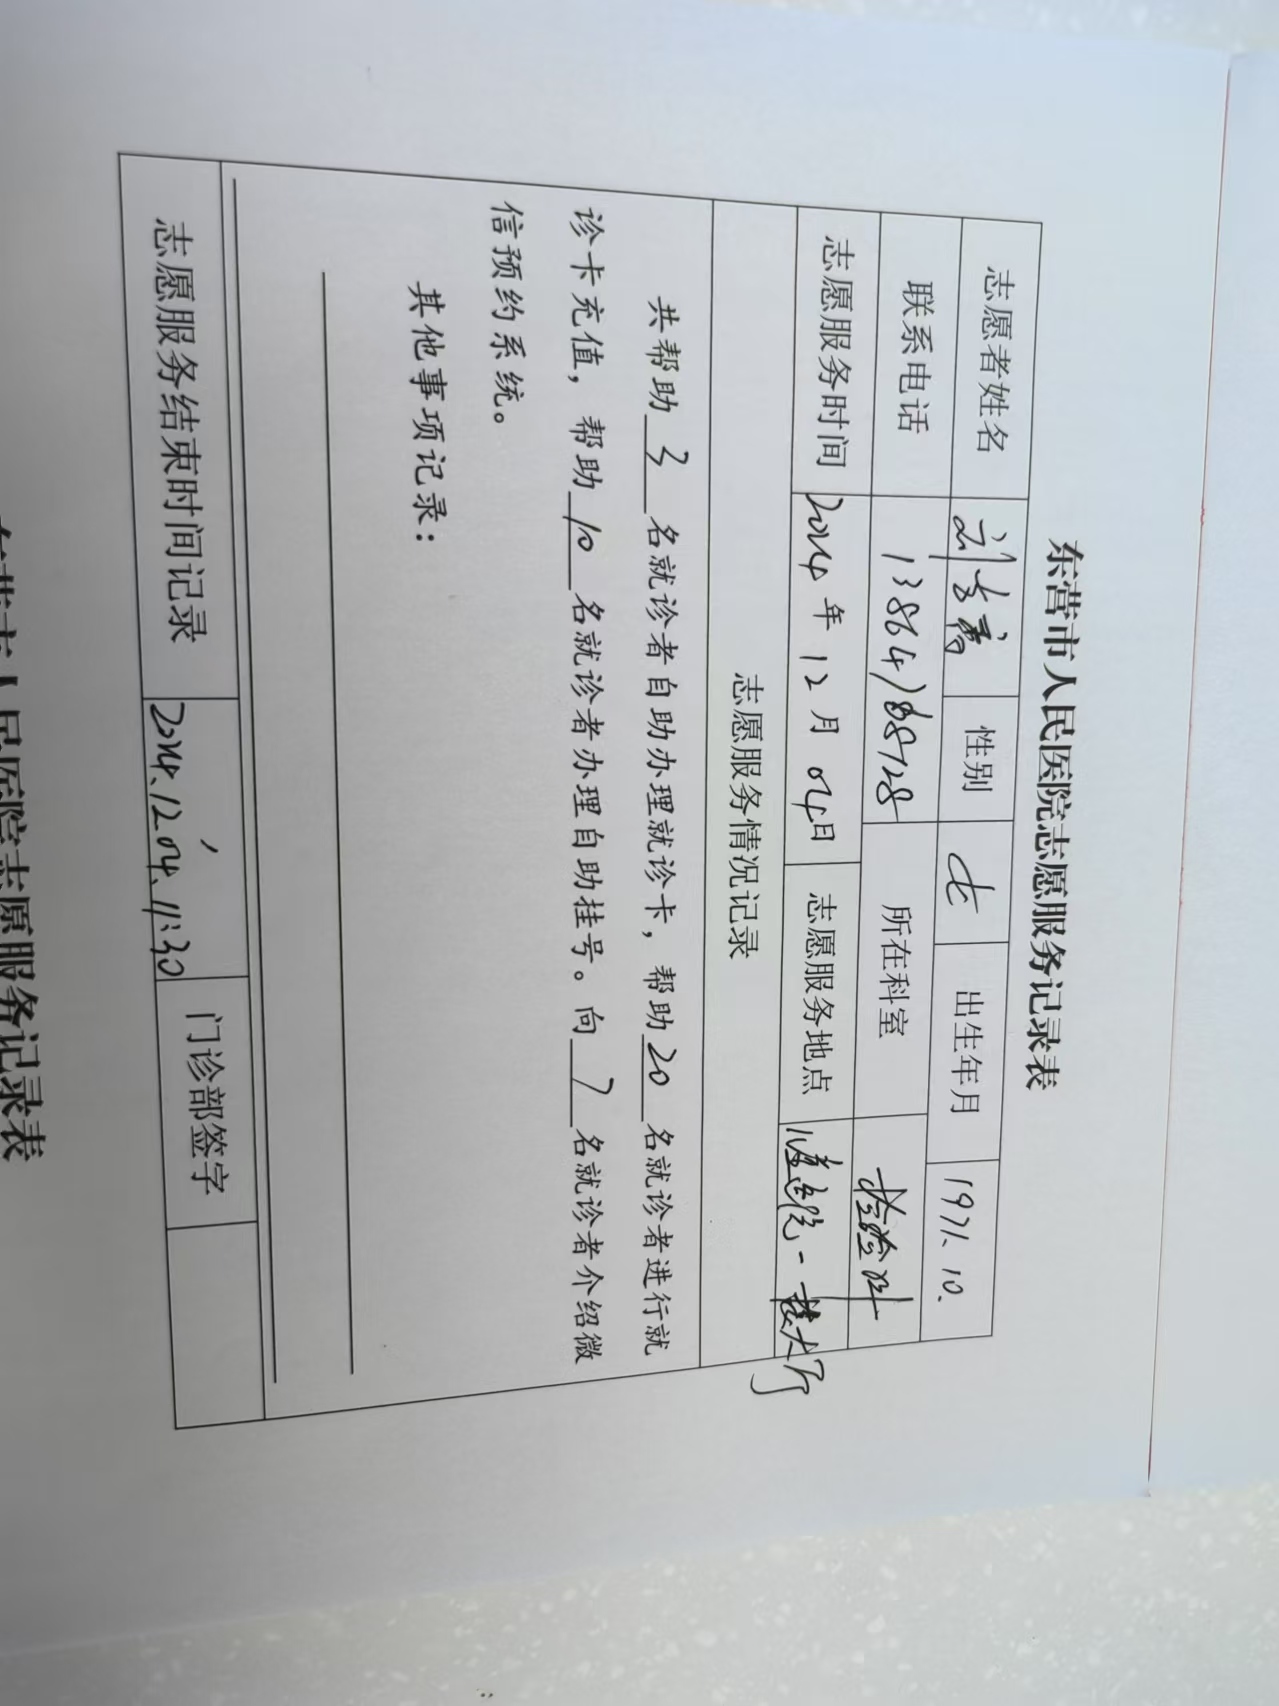 东营市人民医院志愿服务记录表
志愿者姓名 刘 性别 女 出生年月 1971.10.
联系电话 所在科室 检验科
志愿服务时间 2014年12月04日 志愿服务地点 一楼大厅
志愿服务情况记录
共帮助 3 名就诊者自助办理就诊卡，帮助 20 名就诊者进行就
诊卡充值，帮助 10 名就诊者办理自助挂号。向 7 名就诊者介绍微
信预约系统。
其他事项记录：
志愿服务结束时间记录 2014.12.04.11:30 门诊部签字
东营市人民医院志愿服务记录表